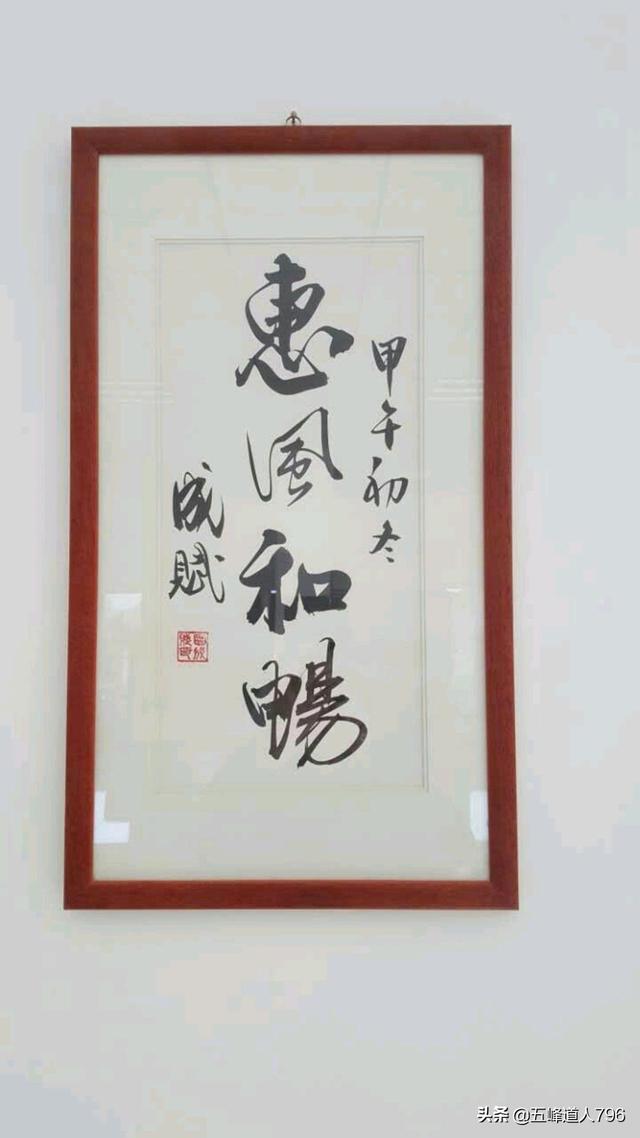 甲午初冬
惠風和暢
成赋
头条 @五峰道人796